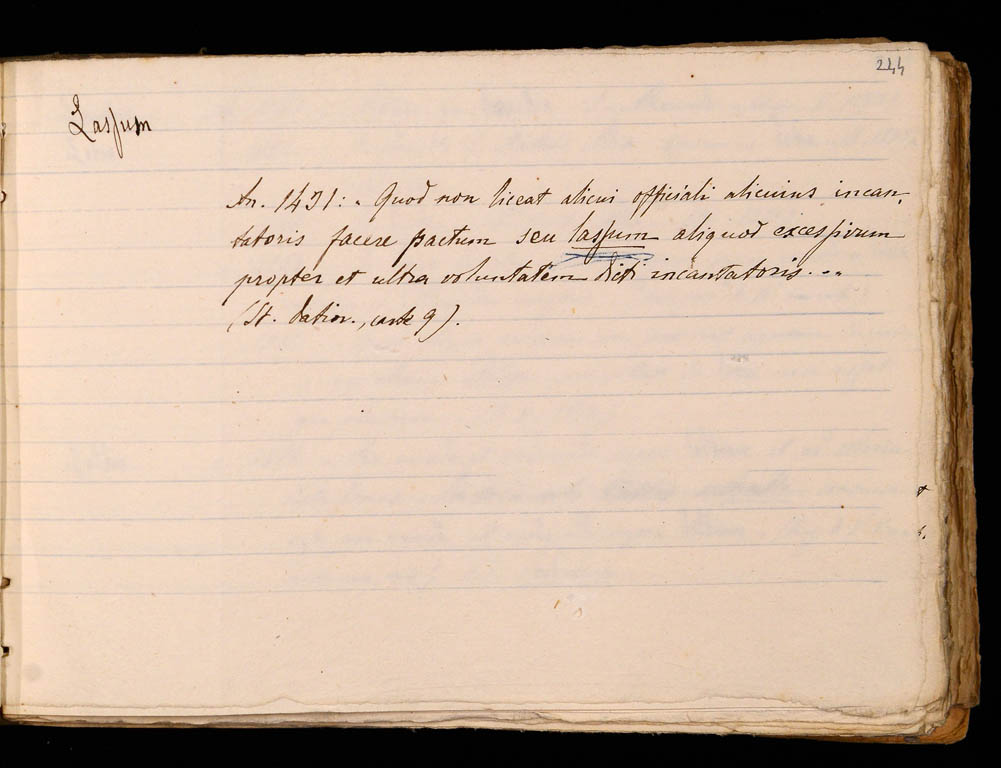 244
Lassum
An. 1431: " Quod non liceat alicui officiali alicuius incan-
tatoris facere pactum seu lassum aliquod excessivum
propter et ultra voluntatem dicti incantatoris..."
(St. datior., carte 9).